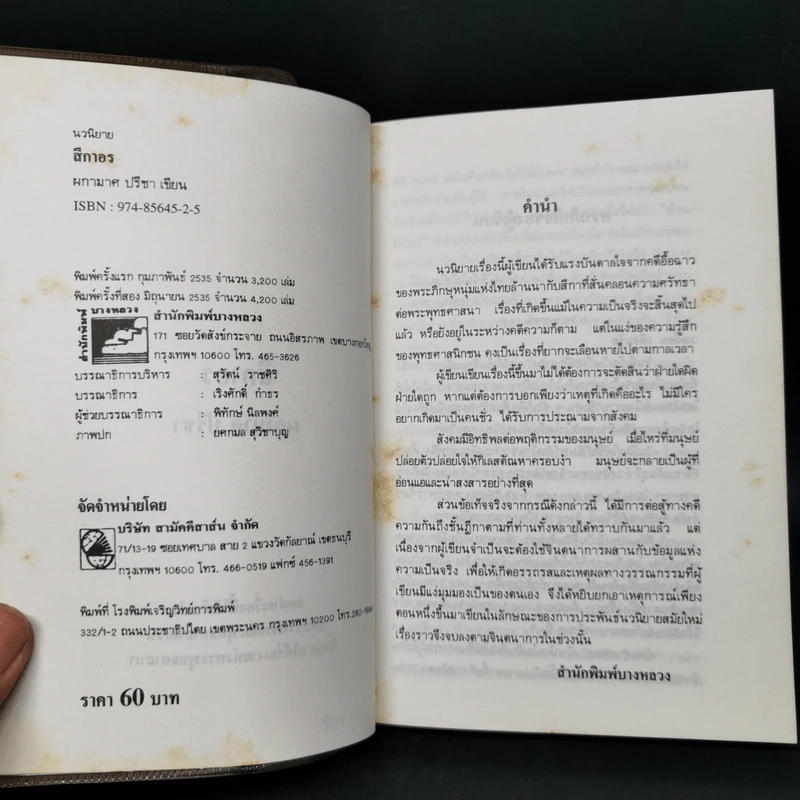 นวนิยาย
สีกาอร
ผกามาศ ปรีชา เขียน
ISBN : 974-85645-2-5
พิมพ์ครั้งแรก กุมภาพันธ์ 2535 จำนวน 3,200 เล่ม
พิมพ์ครั้งที่สอง มิถุนายน 2535 จำนวน 4,200 เล่ม
สำนักพิมพ์ บางหลวง
สำนักพิมพ์บางหลวง
171 ซอยวัดสังข์กระจาย ถนนอิสรภาพ เขตบางกอกใหญ่
กรุงเทพฯ 10600 โทร. 465-3626
บรรณาธิการบริหาร : สุรัตน์ ราชศิริ
บรรณาธิการ : เริงศักดิ์ กำธร
ผู้ช่วยบรรณาธิการ : พิทักษ์ นิลพงศ์
ภาพปก : ยศกมล สุวิชาบุญ
จัดจำหน่ายโดย
บริษัท สามัคคีสาส์น จำกัด
71/13-19 ซอยเทศบาล สาย 2 แขวงวัดกัลยาณ์ เขตธนบุรี
กรุงเทพฯ 10600 โทร. 466-0519 แฟกซ์ 456-1391
พิมพ์ที่ โรงพิมพ์เจริญวิทย์การพิมพ์
332/1-2 ถนนประชาธิปไตย เขตพระนคร กรุงเทพฯ 10200 โทร.
ราคา 60 บาท
คำนำ
นวนิยายเรื่องนี้ผู้เขียนได้รับแรงบันดาลใจจากคดีอื้อฉาว
ของพระภิกษุหนุ่มแห่งไทยล้านนากับสีกาที่สั่นคลอนความศรัทธา
ต่อพระพุทธศาสนา เรื่องที่เกิดขึ้นแม้ในความเป็นจริงจะสิ้นสุดไป
แล้ว หรือยังอยู่ในระหว่างคดีความก็ตาม แต่ในแง่ของความรู้สึก
ของพุทธศาสนิกชน คงเป็นเรื่องที่ยากจะเลือนหายไปตามกาลเวลา
ผู้เขียนเขียนเรื่องนี้ขึ้นมาไม่ได้ต้องการจะตัดสินว่าฝ่ายใดผิด
ฝ่ายใดถูก หากแต่ต้องการบอกเพียงว่าเหตุที่เกิดคืออะไร ไม่มีใคร
อยากเกิดมาเป็นคนชั่ว ได้รับการประณามจากสังคม
สังคมมีอิทธิพลต่อพฤติกรรมของมนุษย์ เมื่อไหร่ที่มนุษย์
ปล่อยตัวปล่อยใจให้กิเลสตัณหาครอบงำ มนุษย์จะกลายเป็นผู้ที่
อ่อนแอและน่าสงสารอย่างที่สุด
ส่วนข้อเท็จจริงจากกรณีดังกล่าวนี้ ได้มีการต่อสู้ทางคดี
ความกันถึงชั้นฎีกาตามที่ท่านทั้งหลายได้ทราบกันมาแล้ว แต่
เนื่องจากผู้เขียนจำเป็นจะต้องใช้จินตนาการผสานกับข้อมูลแห่ง
ความเป็นจริง เพื่อให้เกิดอรรถรสและเหตุผลทางวรรณกรรมที่ผู้
เขียนมีแง่มุมมองเป็นของตนเอง จึงได้หยิบยกเอาเหตุการณ์เพียง
ตอนหนึ่งขึ้นมาเขียนในลักษณะของการประพันธ์นวนิยายสมัยใหม่
เรื่องราวจึงจบลงตามจินตนาการในช่วงนั้น
สำนักพิมพ์บางหลวง